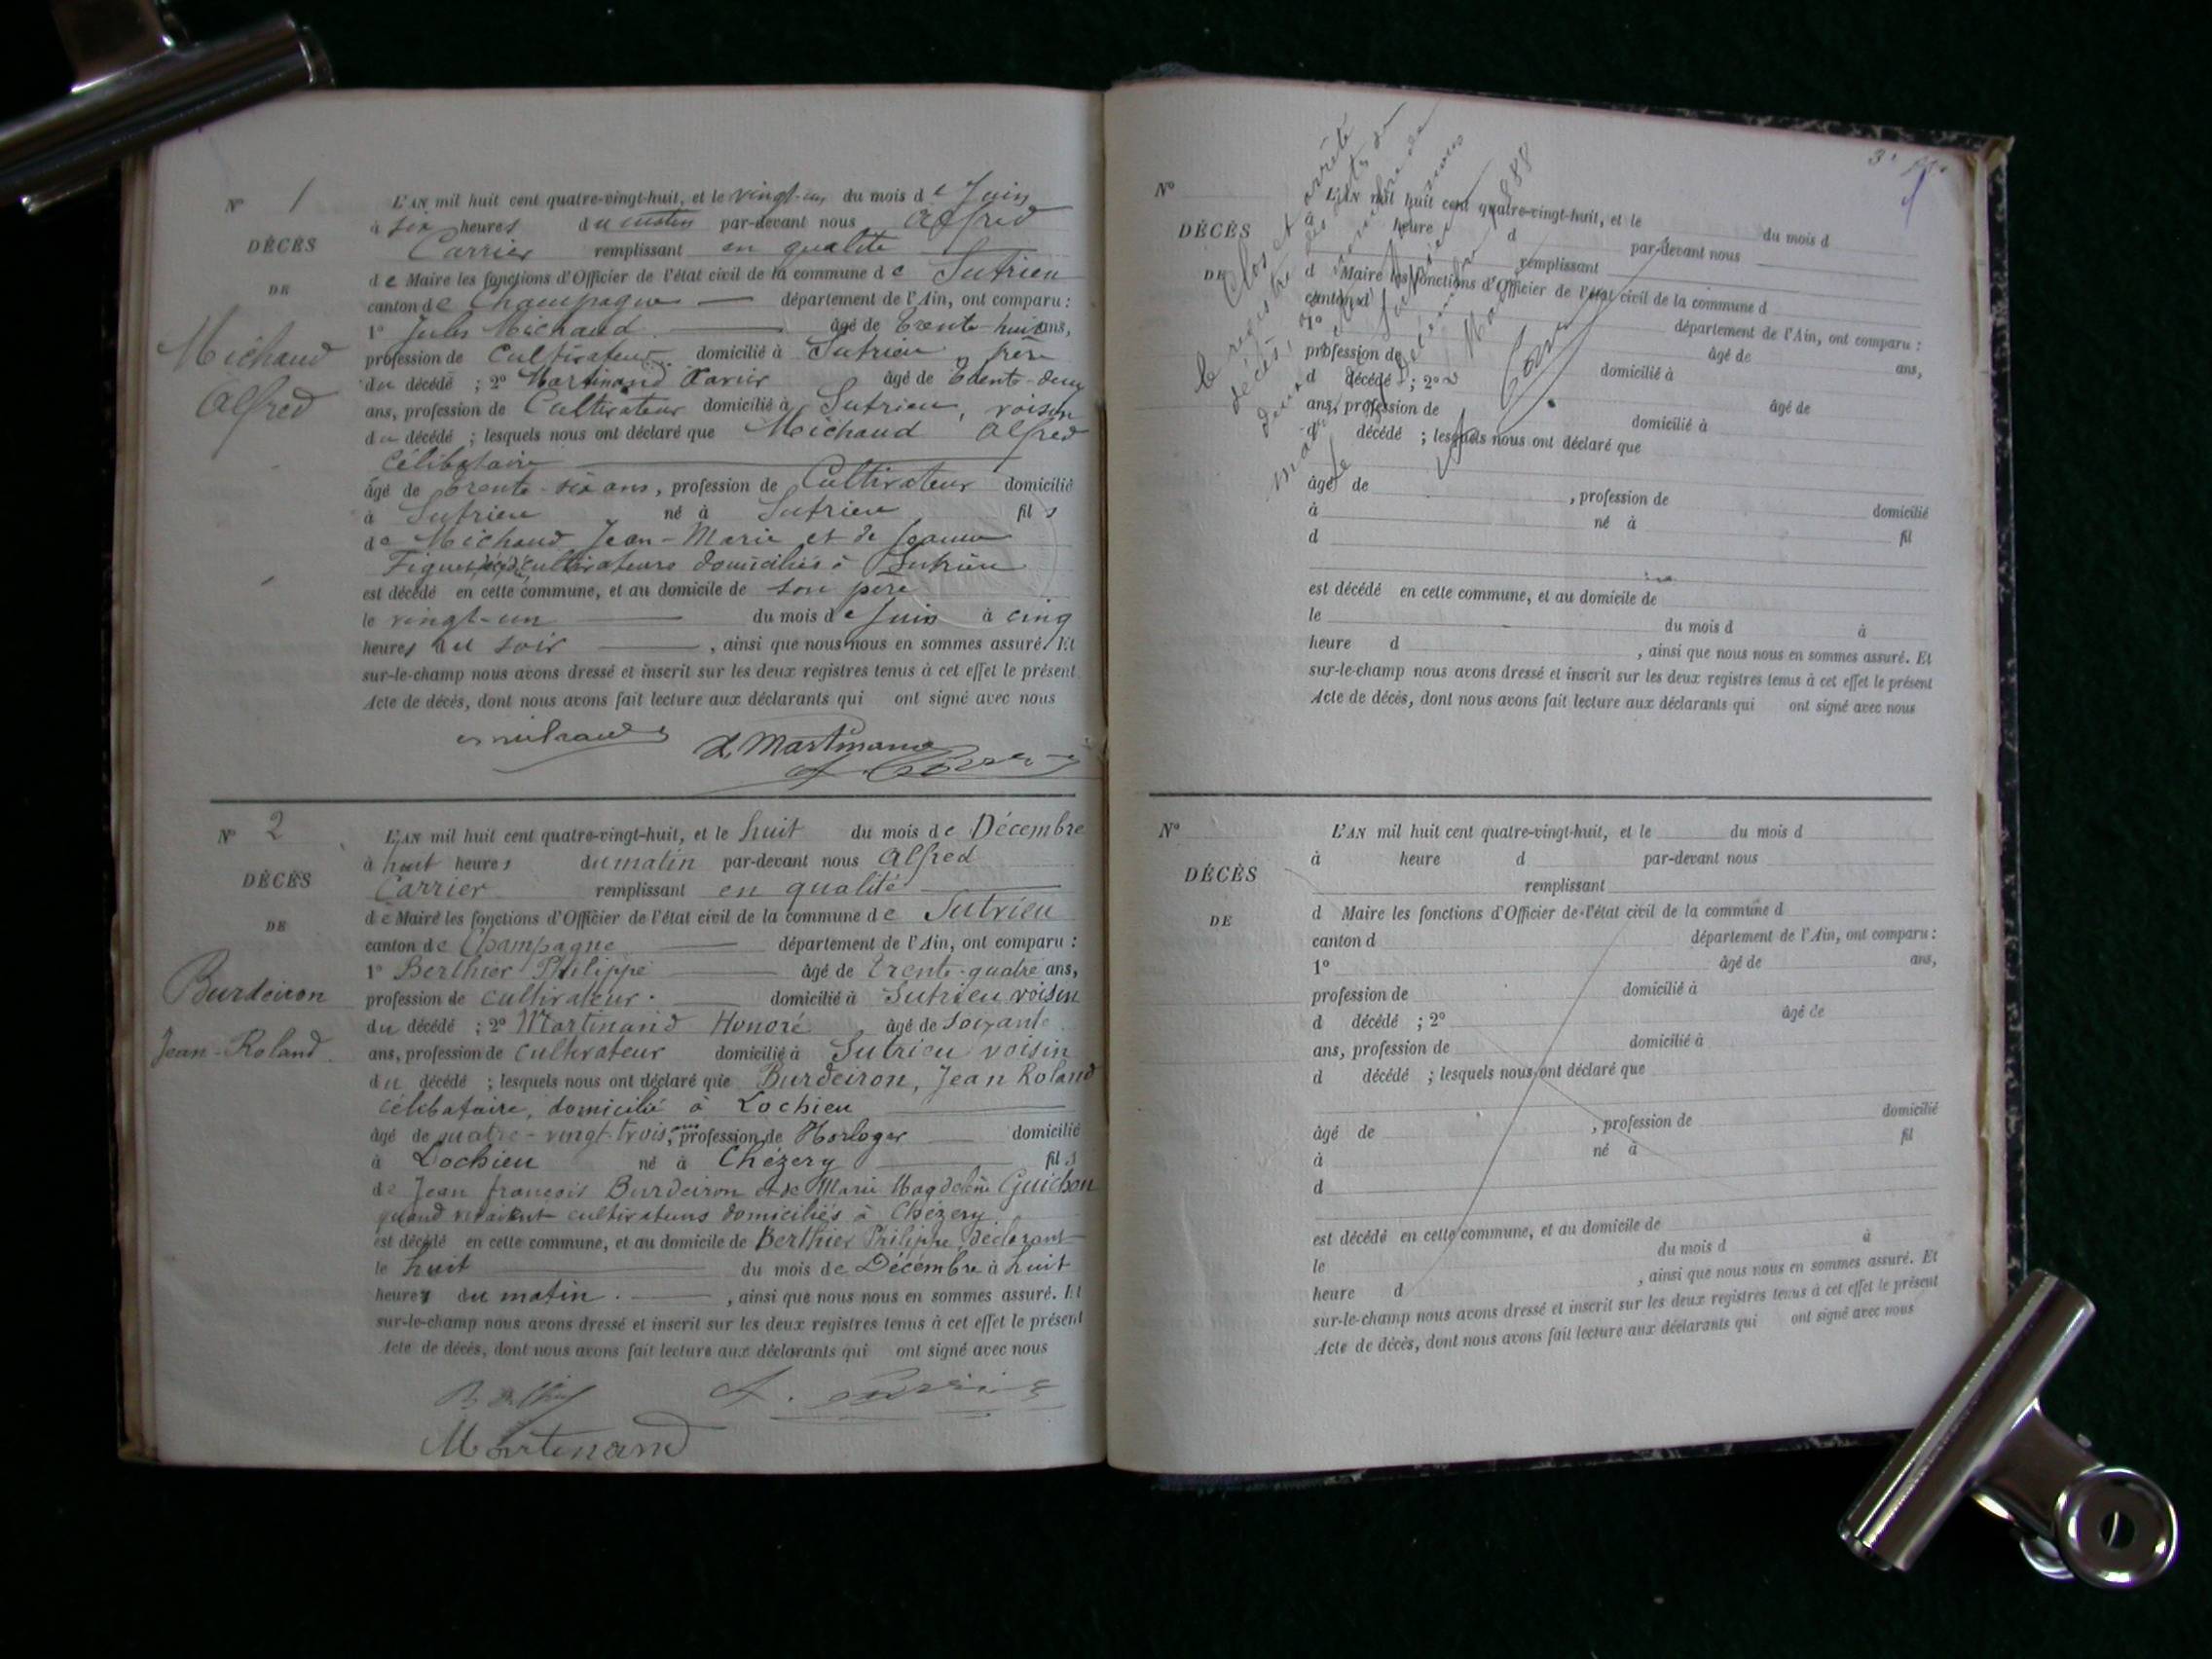 N° 1
DÉCÈS
DE
Michaud
Alfred
L'AN mil huit cent quatre-vingt-huit, et le vingt-un du mois de Juin
à six heures du matin par-devant nous Alfred
Carrier remplissant en qualité
de Maire les fonctions d'Officier de l'état civil de la commune de Sutrieu
canton de Champagne département de l'Ain, ont comparu :
1° Jules Michaud âgé de trente-huit ans,
profession de Cultivateur domicilié à Sutrieu, frère
du décédé ; 2° Martinand Xavier âgé de trente-deux
ans, profession de Cultivateur domicilié à Sutrieu, voisin
du décédé ; lesquels nous ont déclaré que Michaud Alfred
Célibataire
âgé de trente-six ans, profession de Cultivateur domicilié
à Sutrieu né à Sutrieu fils
de Michaud Jean-Marie et de Jeanne
Figuet cultivateurs domiciliés à Sutrieu
est décédé en cette commune, et au domicile de son père
le vingt-un du mois de Juin à cinq
heures du soir, ainsi que nous nous en sommes assuré. Et
sur-le-champ nous avons dressé et inscrit sur les deux registres tenus à cet effet le présent
Acte de décès, dont nous avons fait lecture aux déclarants qui ont signé avec nous
N° 2
DÉCÈS
DE
Burdeiron
Jean-Roland.
L'AN mil huit cent quatre-vingt-huit, et le huit du mois de Décembre
à huit heures du matin par-devant nous Alfred
Carrier remplissant en qualité
de Maire les fonctions d'Officier de l'état civil de la commune de Sutrieu
canton de Champagne département de l'Ain, ont comparu :
1° Berthier Philippe âgé de trente-quatre ans,
profession de cultivateur. domicilié à Sutrieu voisin
du décédé ; 2° Martinand Honoré âgé de soixante
ans, profession de cultivateur domicilié à Sutrieu voisin
du décédé ; lesquels nous ont déclaré que Burdeiron, Jean Roland
célibataire, domicilié à Lochieu
âgé de quatre-vingt-trois ans, profession de Horloger domicilié
à Lochieu né à Chézery fils
de Jean françois Burdeiron et de Marie Magdeleine Guichon
quand vivaient cultivateurs domiciliés à Chézery.
est décédé en cette commune, et au domicile de Berthier Philippe, déclarant
le huit du mois de Décembre à huit
heures du matin. , ainsi que nous nous en sommes assuré. Et
sur-le-champ nous avons dressé et inscrit sur les deux registres tenus à cet effet le présent
Acte de décès, dont nous avons fait lecture aux déclarants qui ont signé avec nous
Martinand
N°
DÉCÈS
DE
Clos et arrêté
le registre des actes de
décès,
1888
L'AN mil huit cent quatre-vingt-huit, et le du mois d
à heure d par-devant nous
remplissant
d Maire les fonctions d'Officier de l'état civil de la commune d
canton d département de l'Ain, ont comparu :
1° âgé de ans,
profession de domicilié à
d décédé ; 2° âgé de
ans, profession de domicilié à
d décédé ; lesquels nous ont déclaré que
âgé de , profession de domicilié
à né à fil
d
est décédé en cette commune, et au domicile de
le du mois d à
heure d , ainsi que nous nous en sommes assuré. Et
sur-le-champ nous avons dressé et inscrit sur les deux registres tenus à cet effet le présent
Acte de décès, dont nous avons fait lecture aux déclarants qui ont signé avec nous
N°
DÉCÈS
DE
L'AN mil huit cent quatre-vingt-huit, et le du mois d
à heure d par-devant nous
remplissant
d Maire les fonctions d'Officier de l'état civil de la commune d
canton d département de l'Ain, ont comparu :
1° âgé de ans,
profession de domicilié à
d décédé ; 2° âgé de
ans, profession de domicilié à
d décédé ; lesquels nous ont déclaré que
âgé de , profession de domicilié
à né à fil
d
est décédé en cette commune, et au domicile de
le du mois d à
heure d , ainsi que nous nous en sommes assuré. Et
sur-le-champ nous avons dressé et inscrit sur les deux registres tenus à cet effet le présent
Acte de décès, dont nous avons fait lecture aux déclarants qui ont signé avec nous